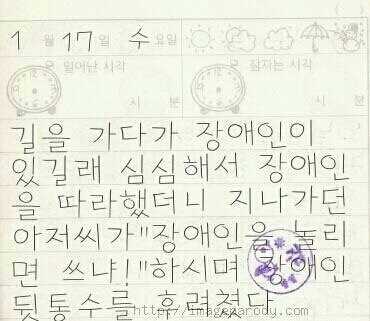 1 월 17 일 수 요일
일어난 시각
잠자는 시각
시 분
시 분
길을 가다가 장애인이
있길래 심심해서 장애인
을 따라했더니 지나가던
아저씨가"장애인을 놀리
면 쓰냐!"하시며 장애인
뒷통수를 후려쳤다
http://imageparody.com/